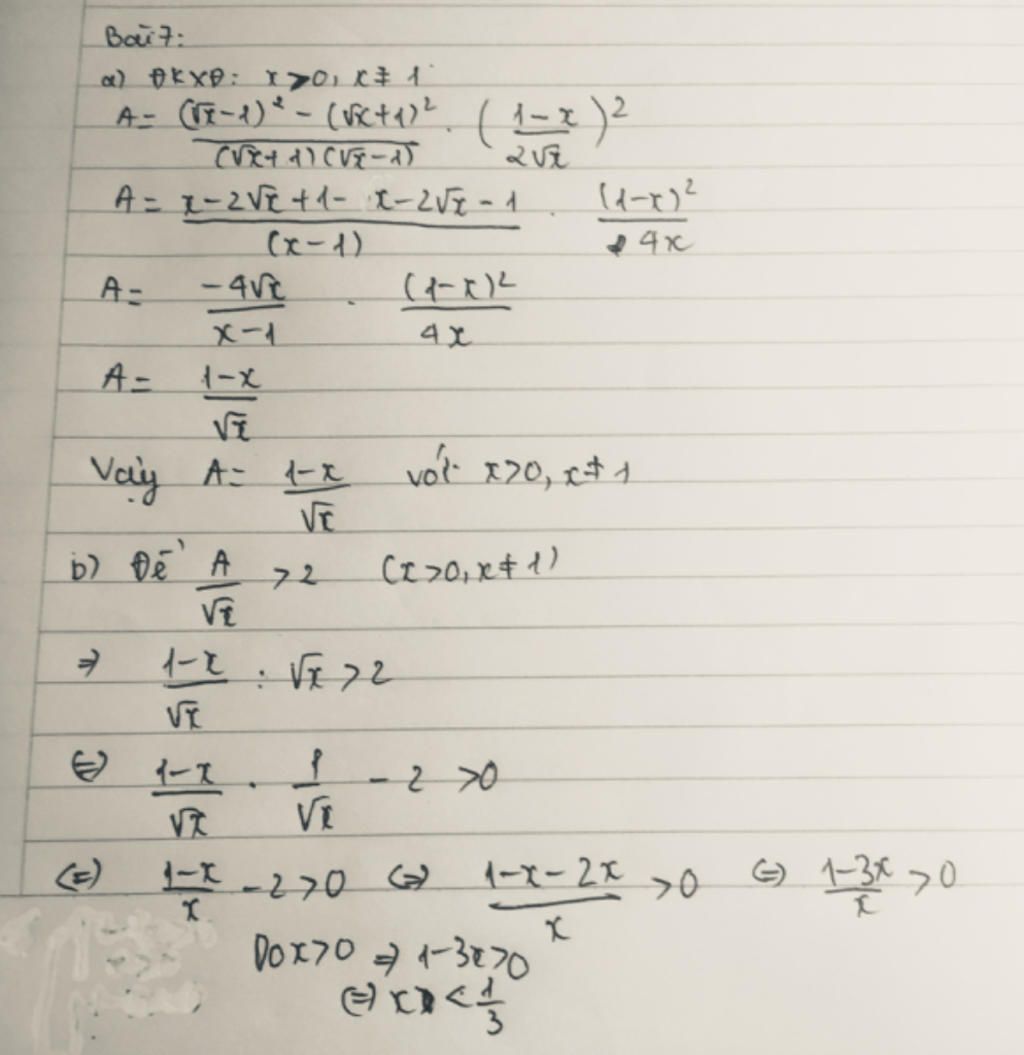 Bài 7:
a) ĐKXĐ: x > 0, x ≠ 1
A = ((√x-1)² - (√x+1)²)/((√x+1)(√x-1)) . ((1-x)/(2√x))²
A = (x-2√x+1- x-2√x-1)/((x-1)) . (1-x)²/(4x)
A = (-4√x)/(x-1) . (1-x)²/(4x)
A = (1-x)/√x
Vậy A = (1-x)/√x với x>0, x≠1
b) Để A/√x >2 (x>0, x≠1)
⇒ (1-x)/√x : √x >2
⇔ (1-x)/√x . 1/√x - 2 >0
⇔ (1-x)/x - 2 >0 ⇔ (1-x-2x)/x >0 ⇔ (1-3x)/x >0
Do x>0 ⇒ 1-3x>0
⇔ x < 1/3